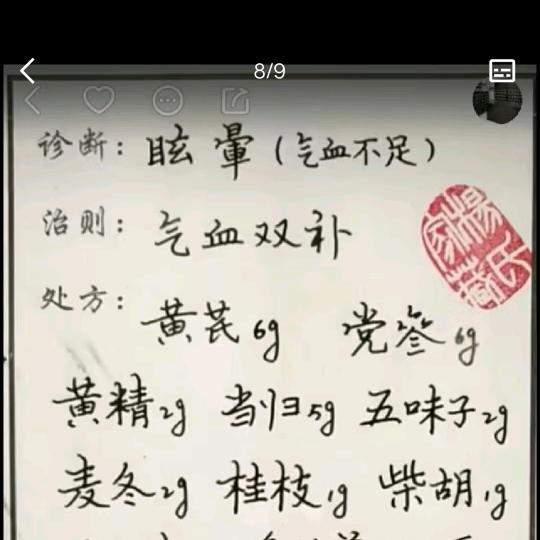 8/9
诊断：眩暈（气血不足）
治则：气血双补
处方：
黄芪6g 党参6g
黄精2g 当归5g 五味子2g
麦冬2g 桂枝1g 柴胡1g